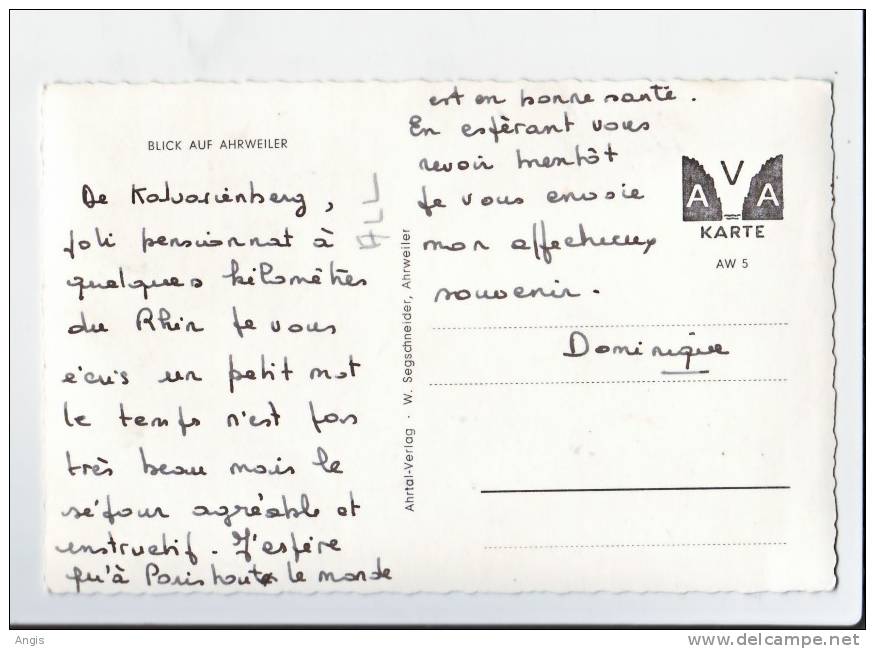 BLICK AUF AHRWEILER
De Kalvarienberg,
joli pensionnat à
quelques kilomètres
du Rhin je vous
écris un petit mot
le temps n'est pas
très beau mais le
séjour agréable et
instructif. J'espère
qu'à Paris tout le monde
est en bonne santé.
En espérant vous
revoir bientôt
je vous envoie
mon affectueux
souvenir.
Dominique
ALL
Ahrtal-Verlag · W. Segschneider, Ahrweiler
AVA
KARTE
AW 5
Angis
www.delcampe.net